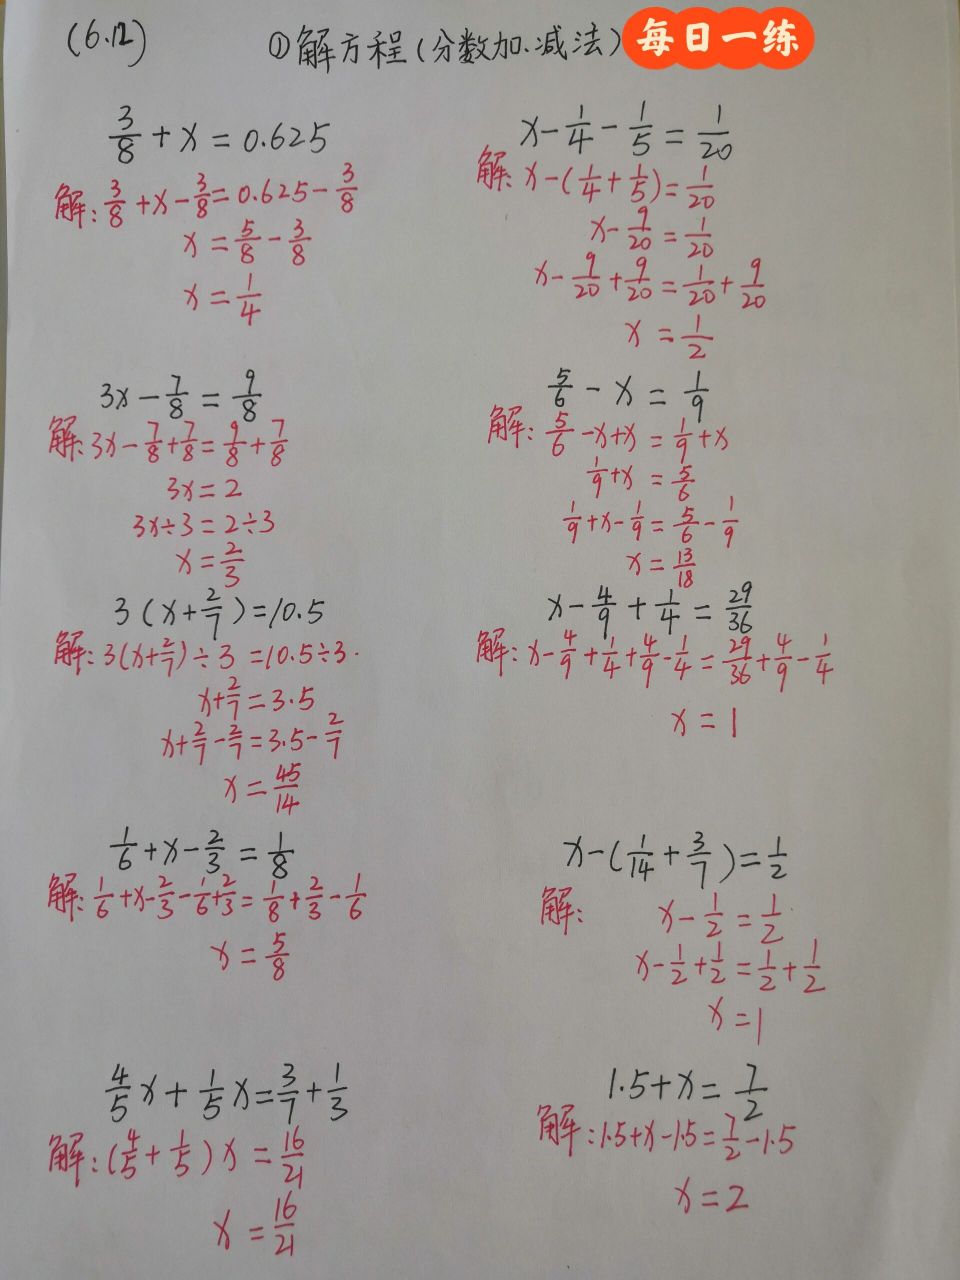 (6.12) ①解方程(分数加.减法) 每日一练
3/8 + x = 0.625
解: 3/8 + x - 3/8 = 0.625 - 3/8
x = 5/8 - 3/8
x = 1/4
x - 1/4 - 1/5 = 1/20
解: x - (1/4 + 1/5) = 1/20
x - 9/20 = 1/20
x - 9/20 + 9/20 = 1/20 + 9/20
x = 1/2
3x - 7/8 = 9/8
解: 3x - 7/8 + 7/8 = 9/8 + 7/8
3x = 2
3x ÷ 3 = 2 ÷ 3
x = 2/3
5/6 - x = 1/9
解: 5/6 - x + x = 1/9 + x
1/9 + x = 5/6
1/9 + x - 1/9 = 5/6 - 1/9
x = 13/18
3(x + 2/7) = 10.5
解: 3(x + 2/7) ÷ 3 = 10.5 ÷ 3.
x + 2/7 = 3.5
x + 2/7 - 2/7 = 3.5 - 2/7
x = 45/14
x - 4/9 + 1/4 = 29/36
解: x - 4/9 + 1/4 + 4/9 - 1/4 = 29/36 + 4/9 - 1/4
x = 1
1/6 + x - 2/3 = 1/8
解: 1/6 + x - 2/3 - 1/6 + 2/3 = 1/8 + 2/3 - 1/6
x = 5/8
x - (1/14 + 3/7) = 1/2
解: x - 1/2 = 1/2
x - 1/2 + 1/2 = 1/2 + 1/2
x = 1
4/5 x + 1/5 x = 3/7 + 1/3
解: (4/5 + 1/5) x = 16/21
x = 16/21
1.5 + x = 7/2
解: 1.5 + x - 1.5 = 7/2 - 1.5
x = 2